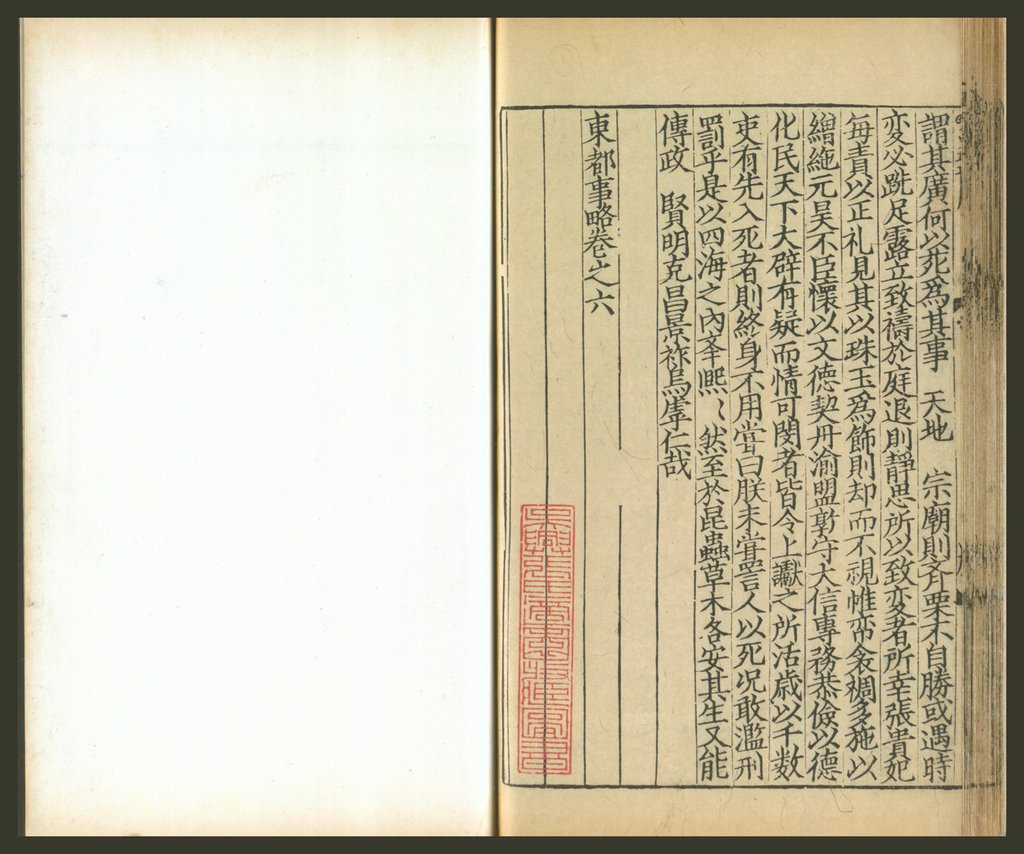 謂其廣何以死為其事 天地 宗廟則斉栗不自勝或遇時
変必跣足露立致禱於庭退則靜思所以致変者所幸張貴妃
每責以正礼見其以珠玉為飾則却而不視帷帟衾裯多施以
繒絁元昊不臣懷以文德契丹渝盟斳守大信專務恭儉以德
化民天下大辟有疑而情可閔者皆令上讞之所活歲以千数
吏有先入死者則終身不用嘗曰朕未嘗詈人以死况敢濫刑
罰乎是以四海之內夆熙〻然至於昆蟲草木各安其生又能
傳政 賢明克昌景祚烏虖仁哉
東都事略卷之六